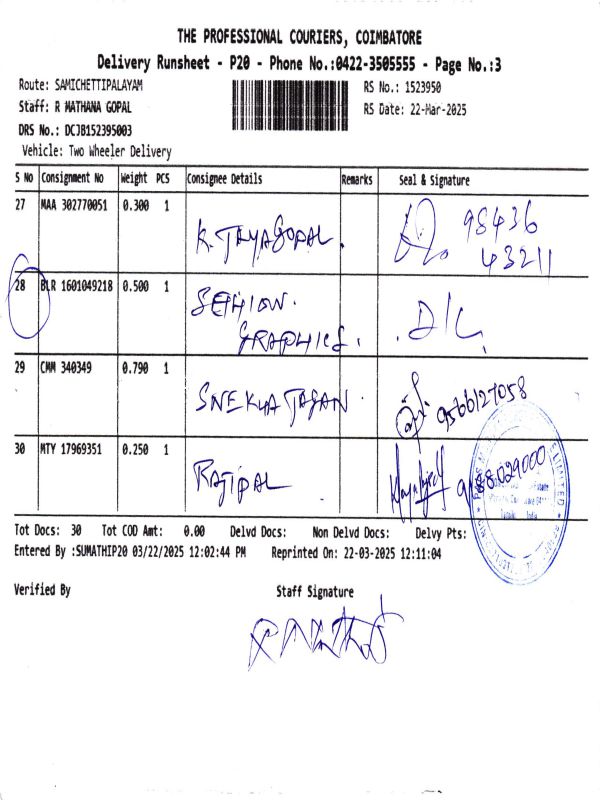 THE PROFESSIONAL COURIERS, COIMBATORE
Delivery Runsheet - P20 - Phone No.:0422-3505555 - Page No.:3
Route: SAMICHETTIPALAYAM RS No.: 1523950
Staff: R MATHANA GOPAL RS Date: 22-Mar-2025
DRS No.: DCJB152395003
Vehicle: Two Wheeler Delivery
S No Consignment No Weight PCS Consignee Details Remarks Seal & Signature
27 MAA 302770051 0.300 1 K. JAYAGOPAL. 98436
43211
28 BLR 1601049218 0.500 1 SEHION.
GRAPHICS.
29 CMM 340349 0.790 1 SNEKHA JAGAN 9566127058
30 MTY 17969351 0.250 1 RAJIPAL
Tot Docs: 30 Tot COD Amt: 0.00 Delvd Docs: Non Delvd Docs: Delvy Pts:
Entered By :SUMATHIP20 03/22/2025 12:02:44 PM Reprinted On: 22-03-2025 12:11:04
Verified By Staff Signature